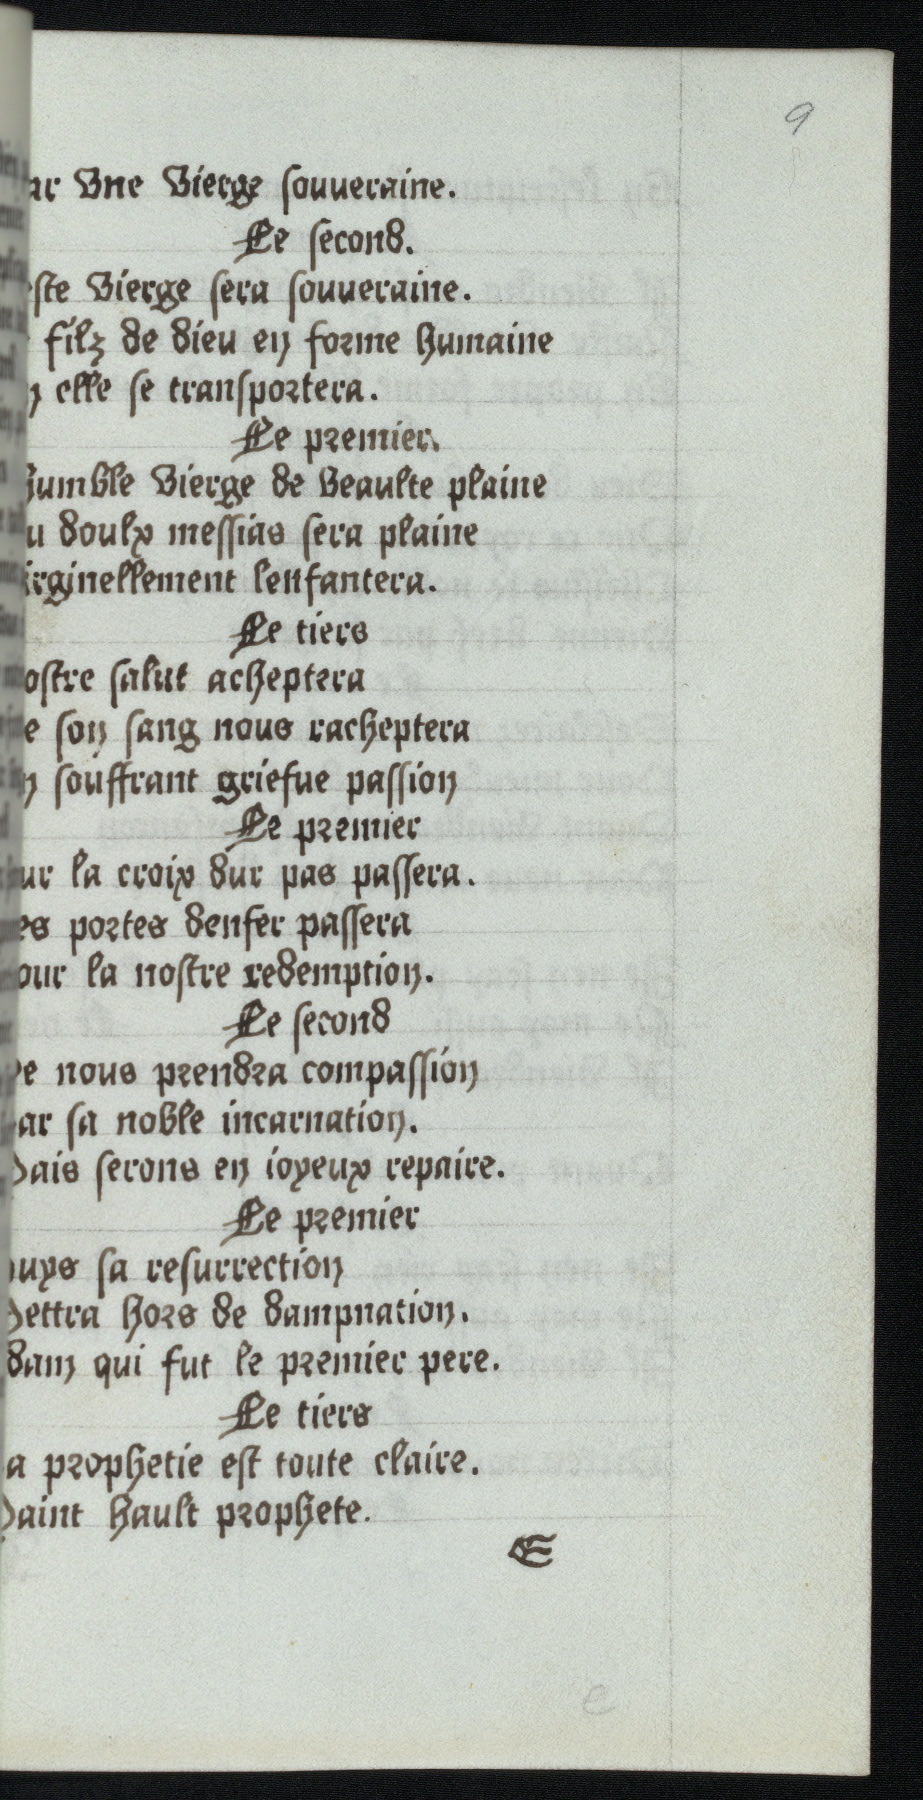 9
ar vne vierge souueraine.
Le second.
este vierge sera souueraine.
filz de dieu en forme humaine
elle se transportera.
Le premier.
humble vierge de beaulte plaine
u doulx messias sera plaine
irginellement lenfantera.
Le tiers
ostre salut acheptera
e son sang nous racheptera
n souffrant griefue passion
Le premier
ur la croix dur pas passera.
es portes denfer passera
our la nostre redemption.
Le second
e nous prendra compassion
ar sa noble incarnation.
ais serons en ioyeux repaire.
Le premier
uys sa resurrection
ettra hors de dampnation.
dam qui fut le premier pere.
Le tiers
a prophetie est toute claire.
aint hault prophete.
E
e